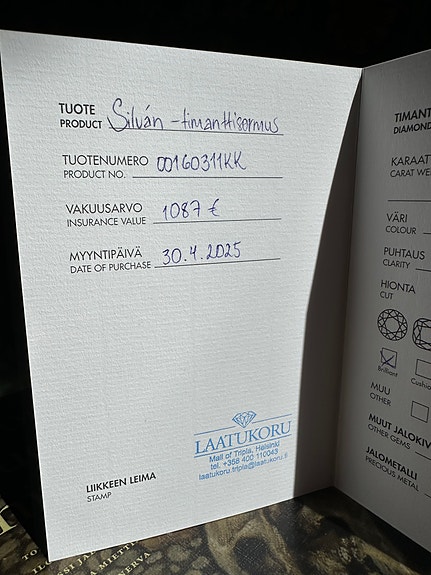 TUOTE
PRODUCT Silván -timanttisormus
TUOTENUMERO
PRODUCT NO. 00160311KK
VAKUUSARVO
INSURANCE VALUE 1087 €
MYYNTIPÄIVÄ
DATE OF PURCHASE 30.4.2025
LAATUKORU
Mall of Tripla, Helsinki
tel. +358 400 110043
laatukoru.tripla@laatukoru.fi
LIIKKEEN LEIMA
STAMP
TIMANT
DIAMOND
KARAAT
CARAT WE
VÄRI
COLOUR
PUHTAUS
CLARITY
HIONTA
CUT
Brilliant
Cushio
MUU
OTHER
MUUT JALOKIV
OTHER GEMS
JALOMETALLI
PRECIOUS METAL